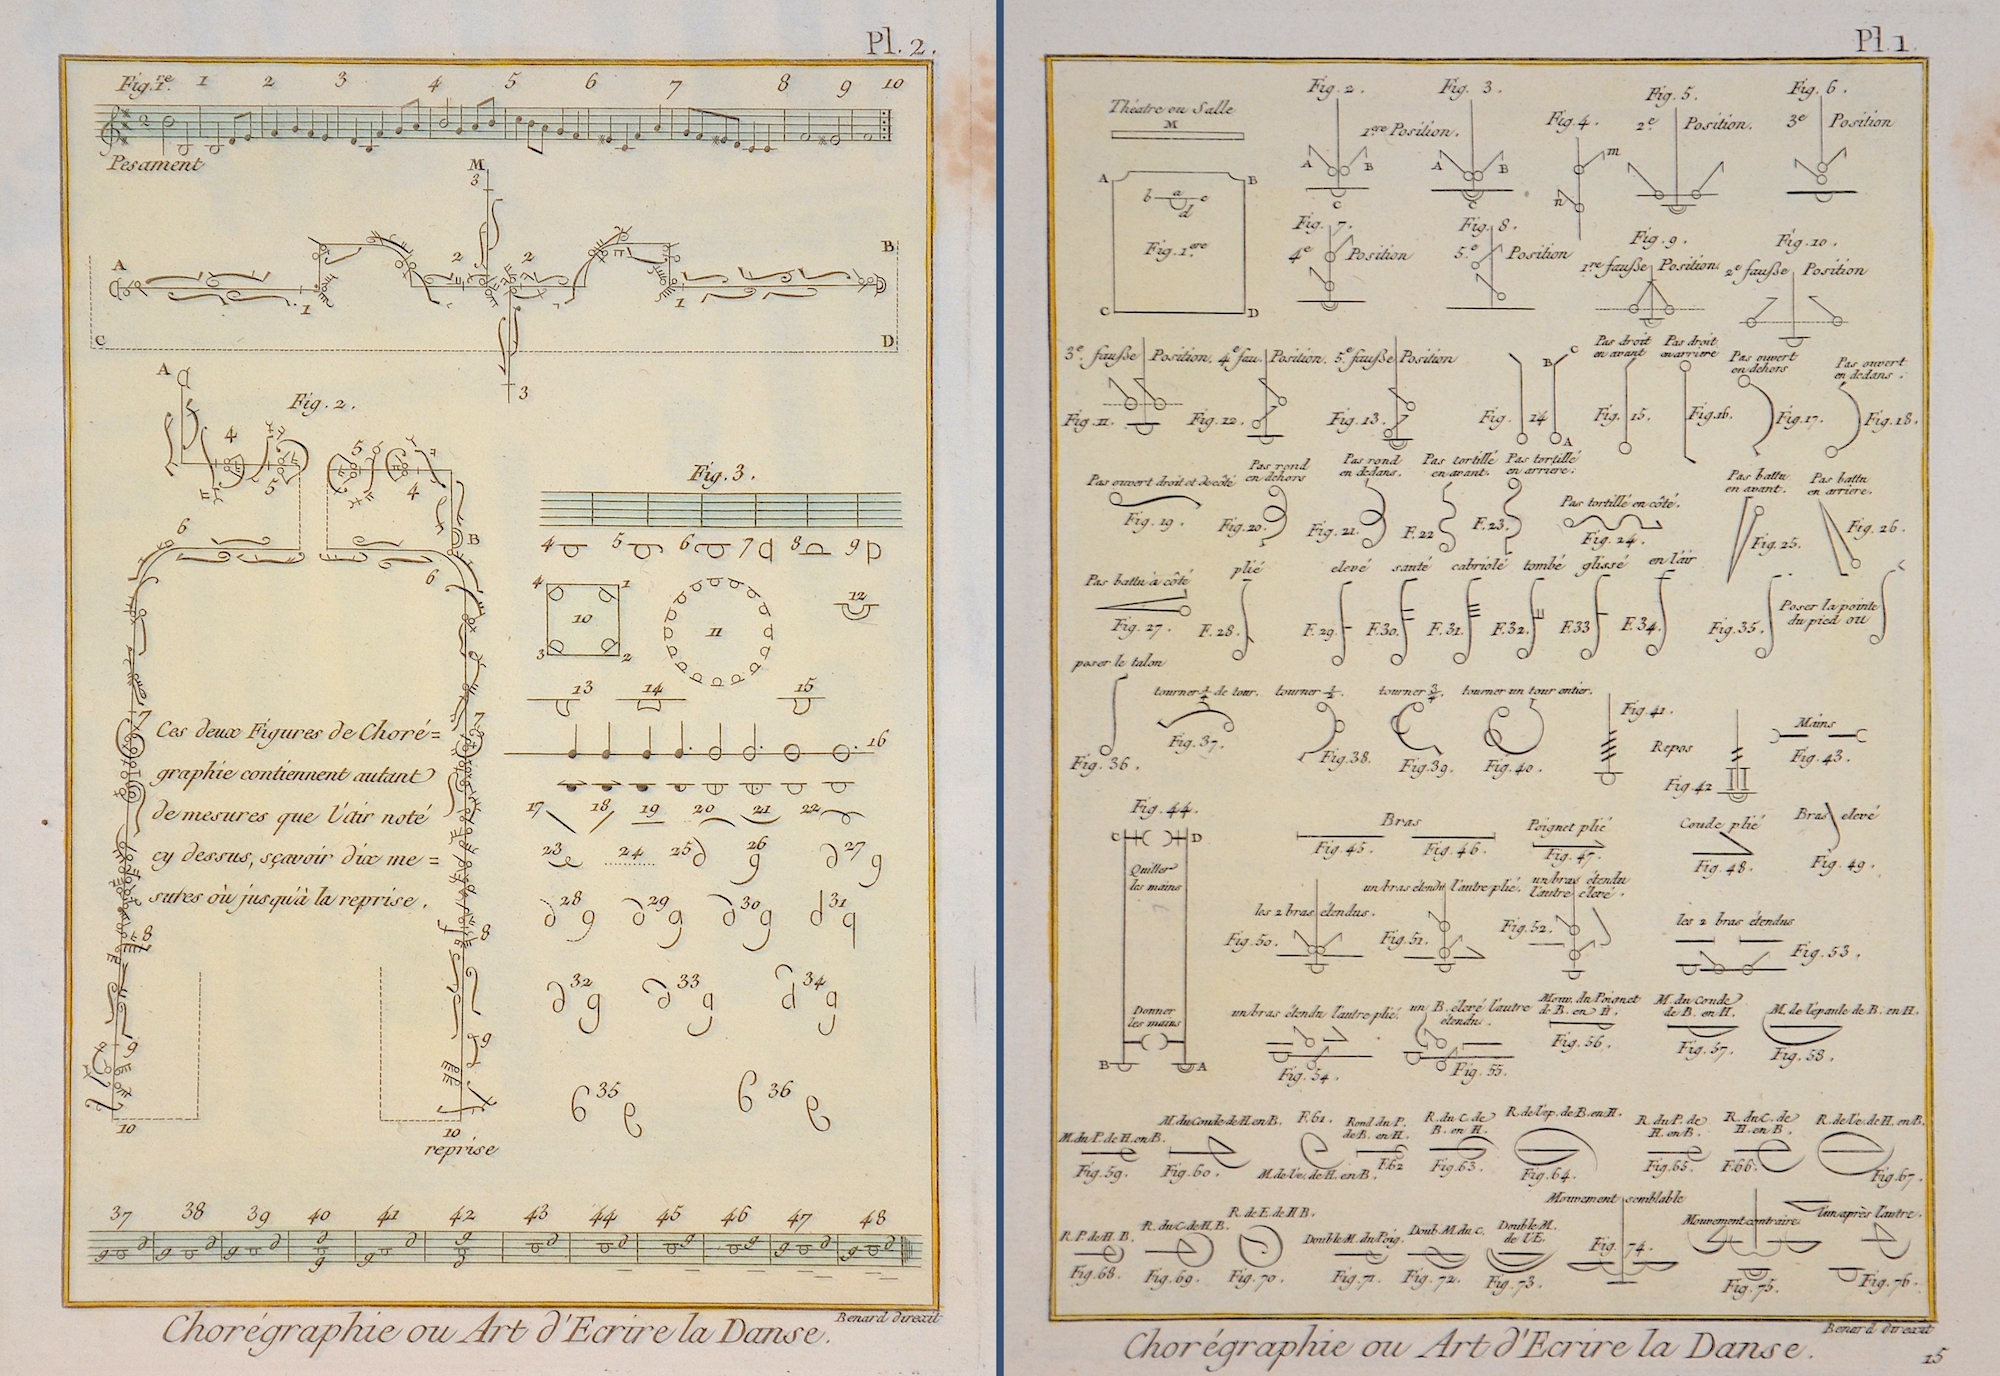 Pl. 2.
Fig. 1.re 1 2 3 4 5 6 7 8 9 10
2
Pesament
M
3
A
B
2 2
1 1
C
D
3
A
Fig. 2.
4 5
5 4
B
6 6
7 7
Ces deux Figures de Choré=
graphie contiennent autant
de mesures que l'air noté
cy dessus, sçavoir dix me=
sures où jusqu'à la reprise.
8 8
9 9
10 10
reprise
Fig. 3.
4 5 6 7 8 9
4 1
10
3 2
11
12
13 14 15
16
17 18 19 20 21 22
23 24 25 26 27
28 29 30 31
32 33 34
35 36
37 38 39 40 41 42 43 44 45 46 47 48
Chorégraphie ou Art d'Ecrire la Danse.
Benard direxit
Pl. 1.
Théatre ou Salle
M
A B
b a c
d
Fig. 1ere
C D
Fig. 2. Fig. 3.
1ere Position.
A B A B
C C
Fig. 4.
m
n
Fig. 5.
2e Position.
Fig. 6.
3e Position
Fig. 7.
4e Position
Fig. 8.
5e Position
Fig. 9.
1re fausse Position.
Fig. 10.
2e fausse Position
3e. fausse Position. 4e fau. Position. 5e fausse Position
Fig. 11. Fig. 12. Fig. 13.
B C
A
Fig. 14
Pas droit
en avant
Fig. 15.
Pas droit
en arriere
Fig. 16.
Pas ouvert
en dehors
Fig. 17.
Pas ouvert
en dedans.
Fig. 18.
Pas ouvert droit et de côté
Fig. 19.
Pas rond
en dehors
Fig. 20.
Pas rond
en dedans.
Fig. 21.
Pas tortillé
en avant.
F. 22
Pas tortillé
en arriere.
F. 23.
Pas tortillé en côté.
Fig. 24.
Pas battu
en avant.
Fig. 25.
Pas battu
en arriere.
Fig. 26.
Pas battu à côté
Fig. 27.
plié
F. 28.
elevé sauté cabriolé tombé glissé en l'air
F. 29. F. 30. F. 31. F. 32. F. 33 F. 34.
Poser la pointe
du pied ou
Fig. 35.
poser le talon
Fig. 36.
tourner 1/4 de tour. tourner 1/2. tourner 3/4. tourner un tour entier.
Fig. 37. Fig. 38. Fig. 39. Fig. 40.
Fig. 41.
Repos
Fig. 42
Mains
Fig. 43.
Fig. 44.
C D
Quitter
les mains
Donner
les mains
B A
Bras
Fig. 45. Fig. 46.
Poignet plié
Fig. 47.
Coude plié
Fig. 48.
Bras elevé
Fig. 49.
les 2 bras étendus.
Fig. 50.
un bras étendu l'autre plié.
Fig. 51.
un bras étendu
l'autre élevé.
Fig. 52.
les 2 bras étendus
Fig. 53.
un bras étendu l'autre plié.
Fig. 54.
un B. elevé l'autre
étendu.
Fig. 55.
Mouv. du Poignet
de B. en H.
Fig. 56.
M. du Coude
de B. en H.
Fig. 57.
M. de l'épaule de B. en H.
Fig. 58.
M. du P. de H. en B.
Fig. 59.
M. du Coude de H. en B.
Fig. 60.
F. 61.
M. de l'e. de H. en B.
Rond du P.
de B. en H.
F. 62
R. du C. de
B. en H.
Fig. 63.
R. de l'ep. de B. en H.
Fig. 64.
R. du P. de
H. en B.
Fig. 65.
R. du C. de
H. en B.
F. 66.
R. de l'e. de H. en B.
Fig. 67.
R. P. de H. B.
Fig. 68.
R. du C. de H. B.
Fig. 69.
R. de E. de H B.
Fig. 70.
Double M. du Poig.
Fig. 71.
Doub. M. du C.
Fig. 72.
Double M.
de l'E.
Fig. 73.
Mouvement semblable
Fig. 74.
Mouvement contraire
Fig. 75.
l'un après l'autre.
Fig. 76.
Chorégraphie ou Art d'Ecrire la Danse.
Benard direxit
15